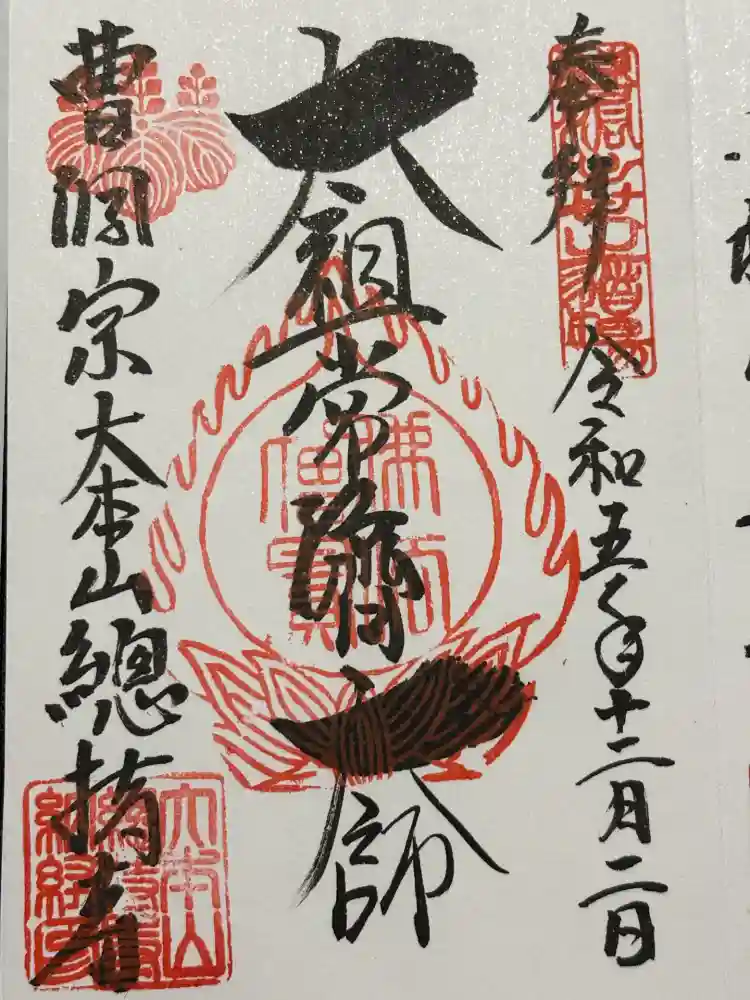 奉拝 令和五年十二月二日
太祖常濟大師
佛法僧寶
曹洞宗大本山總持寺
大本山
總持寺
納経印